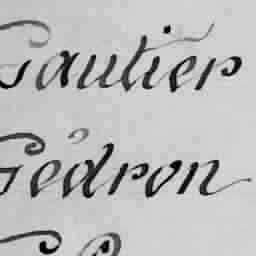 Gautier
Gédron